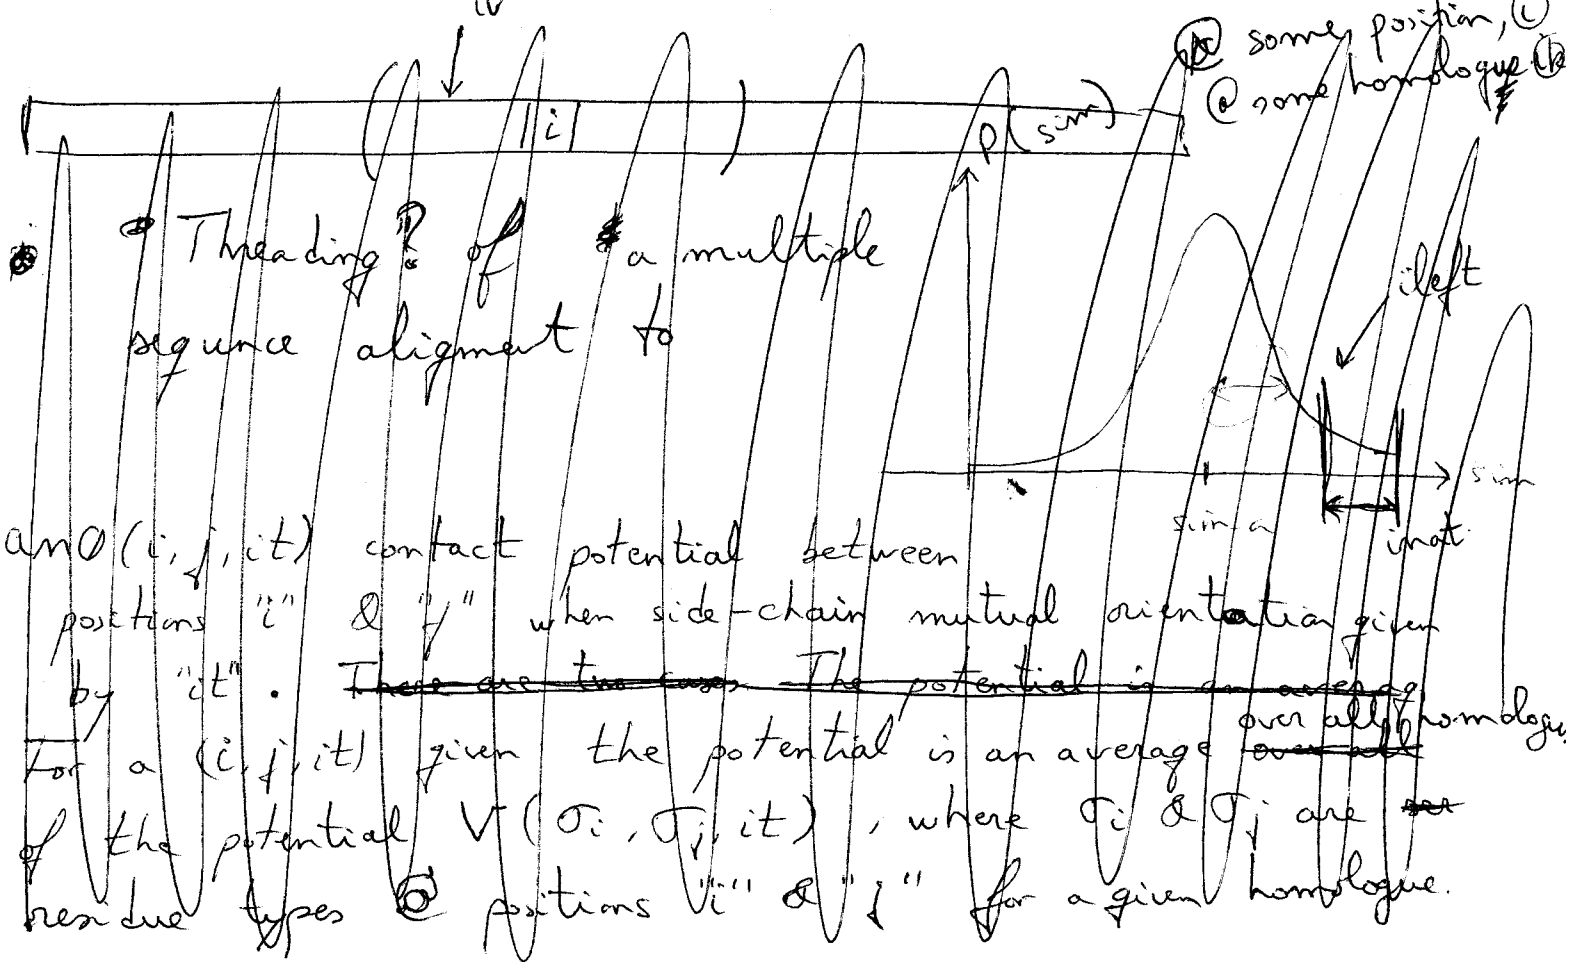 iv
@ some position, (i)
@ some homologue (k)
i
p(sim)
• Threading? of a multiple
sequnce aligment to
ileft
sim
sim a
inat
anO(i, j, it) contact potential between
positions "i" & "j" when side-chain mutual orientation given
by "it". There are two cases The potential is an averag
over all homologu.
For a (i, j, it) given the potential is an average over all
of the potential V(σi, σj, it), where σi & σj are
residue types @ positions "i" & "j" for a given homologue.